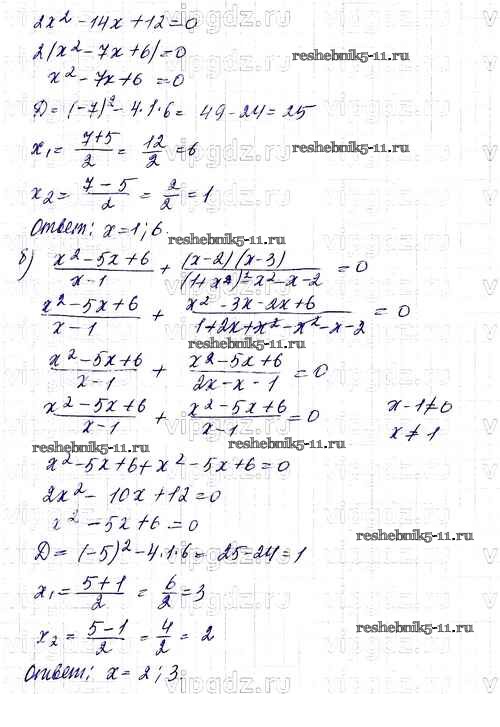 2x² - 14x + 12 = 0
2(x² - 7x + 6) = 0
reshebnik5-11.ru
x² - 7x + 6 = 0
D = (-7)² - 4·1·6 = 49 - 24 = 25
x₁ = (7+5)/2 = 12/2 = 6
reshebnik5-11.ru
x₂ = (7-5)/2 = 2/2 = 1
Ответ: x = 1; 6.
reshebnik5-11.ru
б) (x² - 5x + 6)/(x - 1) + ((x-2)(x-3))/((1+x)² - x² - x - 2) = 0
(x² - 5x + 6)/(x - 1) + (x² - 3x - 2x + 6)/(1 + 2x + x² - x² - x - 2) = 0
reshebnik5-11.ru
(x² - 5x + 6)/(x - 1) + (x² - 5x + 6)/(2x - x - 1) = 0
(x² - 5x + 6)/(x - 1) + (x² - 5x + 6)/(x - 1) = 0 x - 1 ≠ 0
x ≠ 1
reshebnik5-11.ru reshebnik5-11.ru
x² - 5x + 6 + x² - 5x + 6 = 0
2x² - 10x + 12 = 0
x² - 5x + 6 = 0
reshebnik5-11.ru
D = (-5)² - 4·1·6 = 25 - 24 = 1
x₁ = (5+1)/2 = 6/2 = 3
x₂ = (5-1)/2 = 4/2 = 2
reshebnik5-11.ru
Ответ: x = 2; 3.
vipgdz.ru